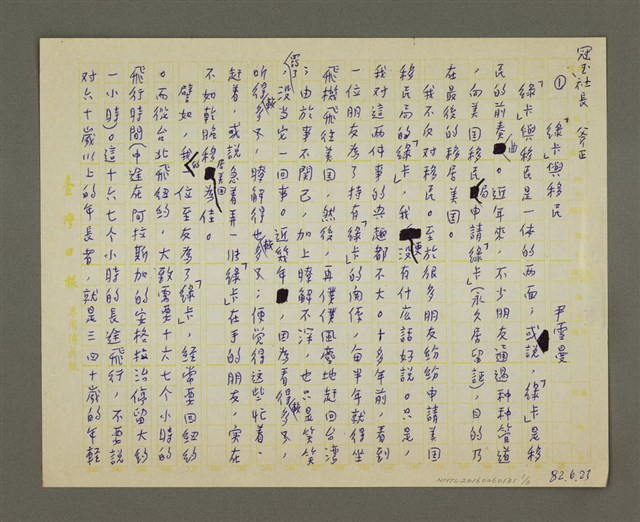 冠玉社長 斧正
「綠卡」與移民 尹雪曼
①
「綠卡」與移民是一体的两面；或説，「綠卡」是移
民的前奏曲。近年來，不少朋友通過種種管道
，向美国移民局申請「綠卡」（永久居留証），目的乃
在最後的移居美国。
我不反对移民。至於很多朋友紛紛申請美国
移民局的「綠卡」，我更没有什広話好説。只是，
我对這两件事的興趣都不大。十多年前，看到
一位朋友為了持有「綠卡」的関係，每半年就得坐
飛機飛往美国，然後，再僕僕風塵地赶回台湾
；由於事不関己，加上瞭解不深，也只是笑笑
罷了，没当它一回事。近幾年，因為看得較多，
听得較多，瞭解得也較多；便觉得這些忙着、
赶着，或説急着弄一张「綠卡」在手的朋友，实在
不如乾脆移居美国為佳。
譬如，我的一位至友為了「綠卡」，経常要回紐約
。而從台北飛紐約，大致需要十六七个小時的
飛行時間（中途在阿拉斯加的安格拉治停留大約
一小時）。這十六七个小時的長途飛行，不要説
对六十歲以上的年長者，就是三四十歲的年輕
臺灣日報
82.6.23